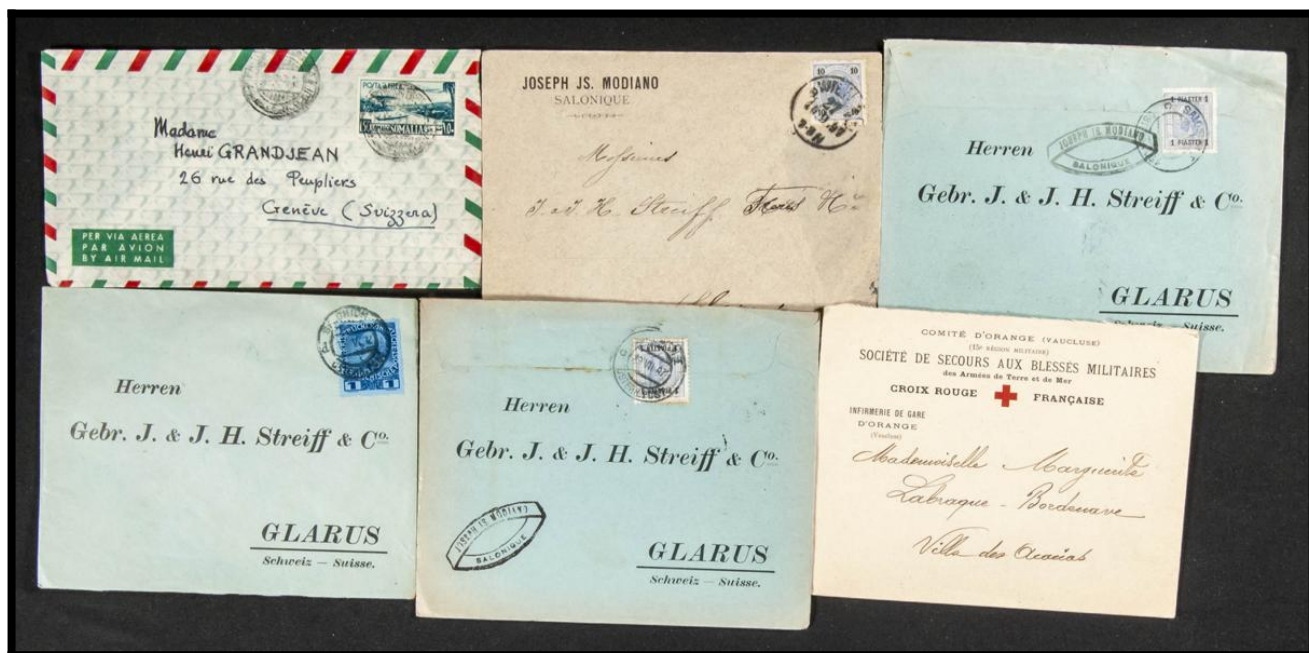 POSTA AEREA
SOMALIA
Madame
Henri GRANDJEAN
26 rue des Peupliers
Genève (Svizzera)
PER VIA AEREA
PAR AVION
BY AIR MAIL
JOSEPH JS. MODIANO
SALONIQUE
10 10
Messieurs
J. & J. H. Streiff
1 PIASTER 1
1 PIASTER 1
JOSEPH JS. MODIANO
SALONIQUE
Herren
Gebr. J. & J. H. Streiff & Co.
GLARUS
Schweiz – Suisse.
1
Herren
Gebr. J. & J. H. Streiff & Co.
GLARUS
Schweiz – Suisse.
Herren
Gebr. J. & J. H. Streiff & Co.
JOSEPH JS MODIANO
SALONIQUE
GLARUS
Schweiz – Suisse.
COMITÉ D'ORANGE (VAUCLUSE)
(15e RÉGION MILITAIRE)
SOCIÉTÉ DE SECOURS AUX BLESSÉS MILITAIRES
des Armées de Terre et de Mer
CROIX ROUGE FRANÇAISE
INFIRMERIE DE GARE
D'ORANGE
(Vaucluse)
Mademoiselle Marguerite
Labraque - Bordenave
Villa des Acacias